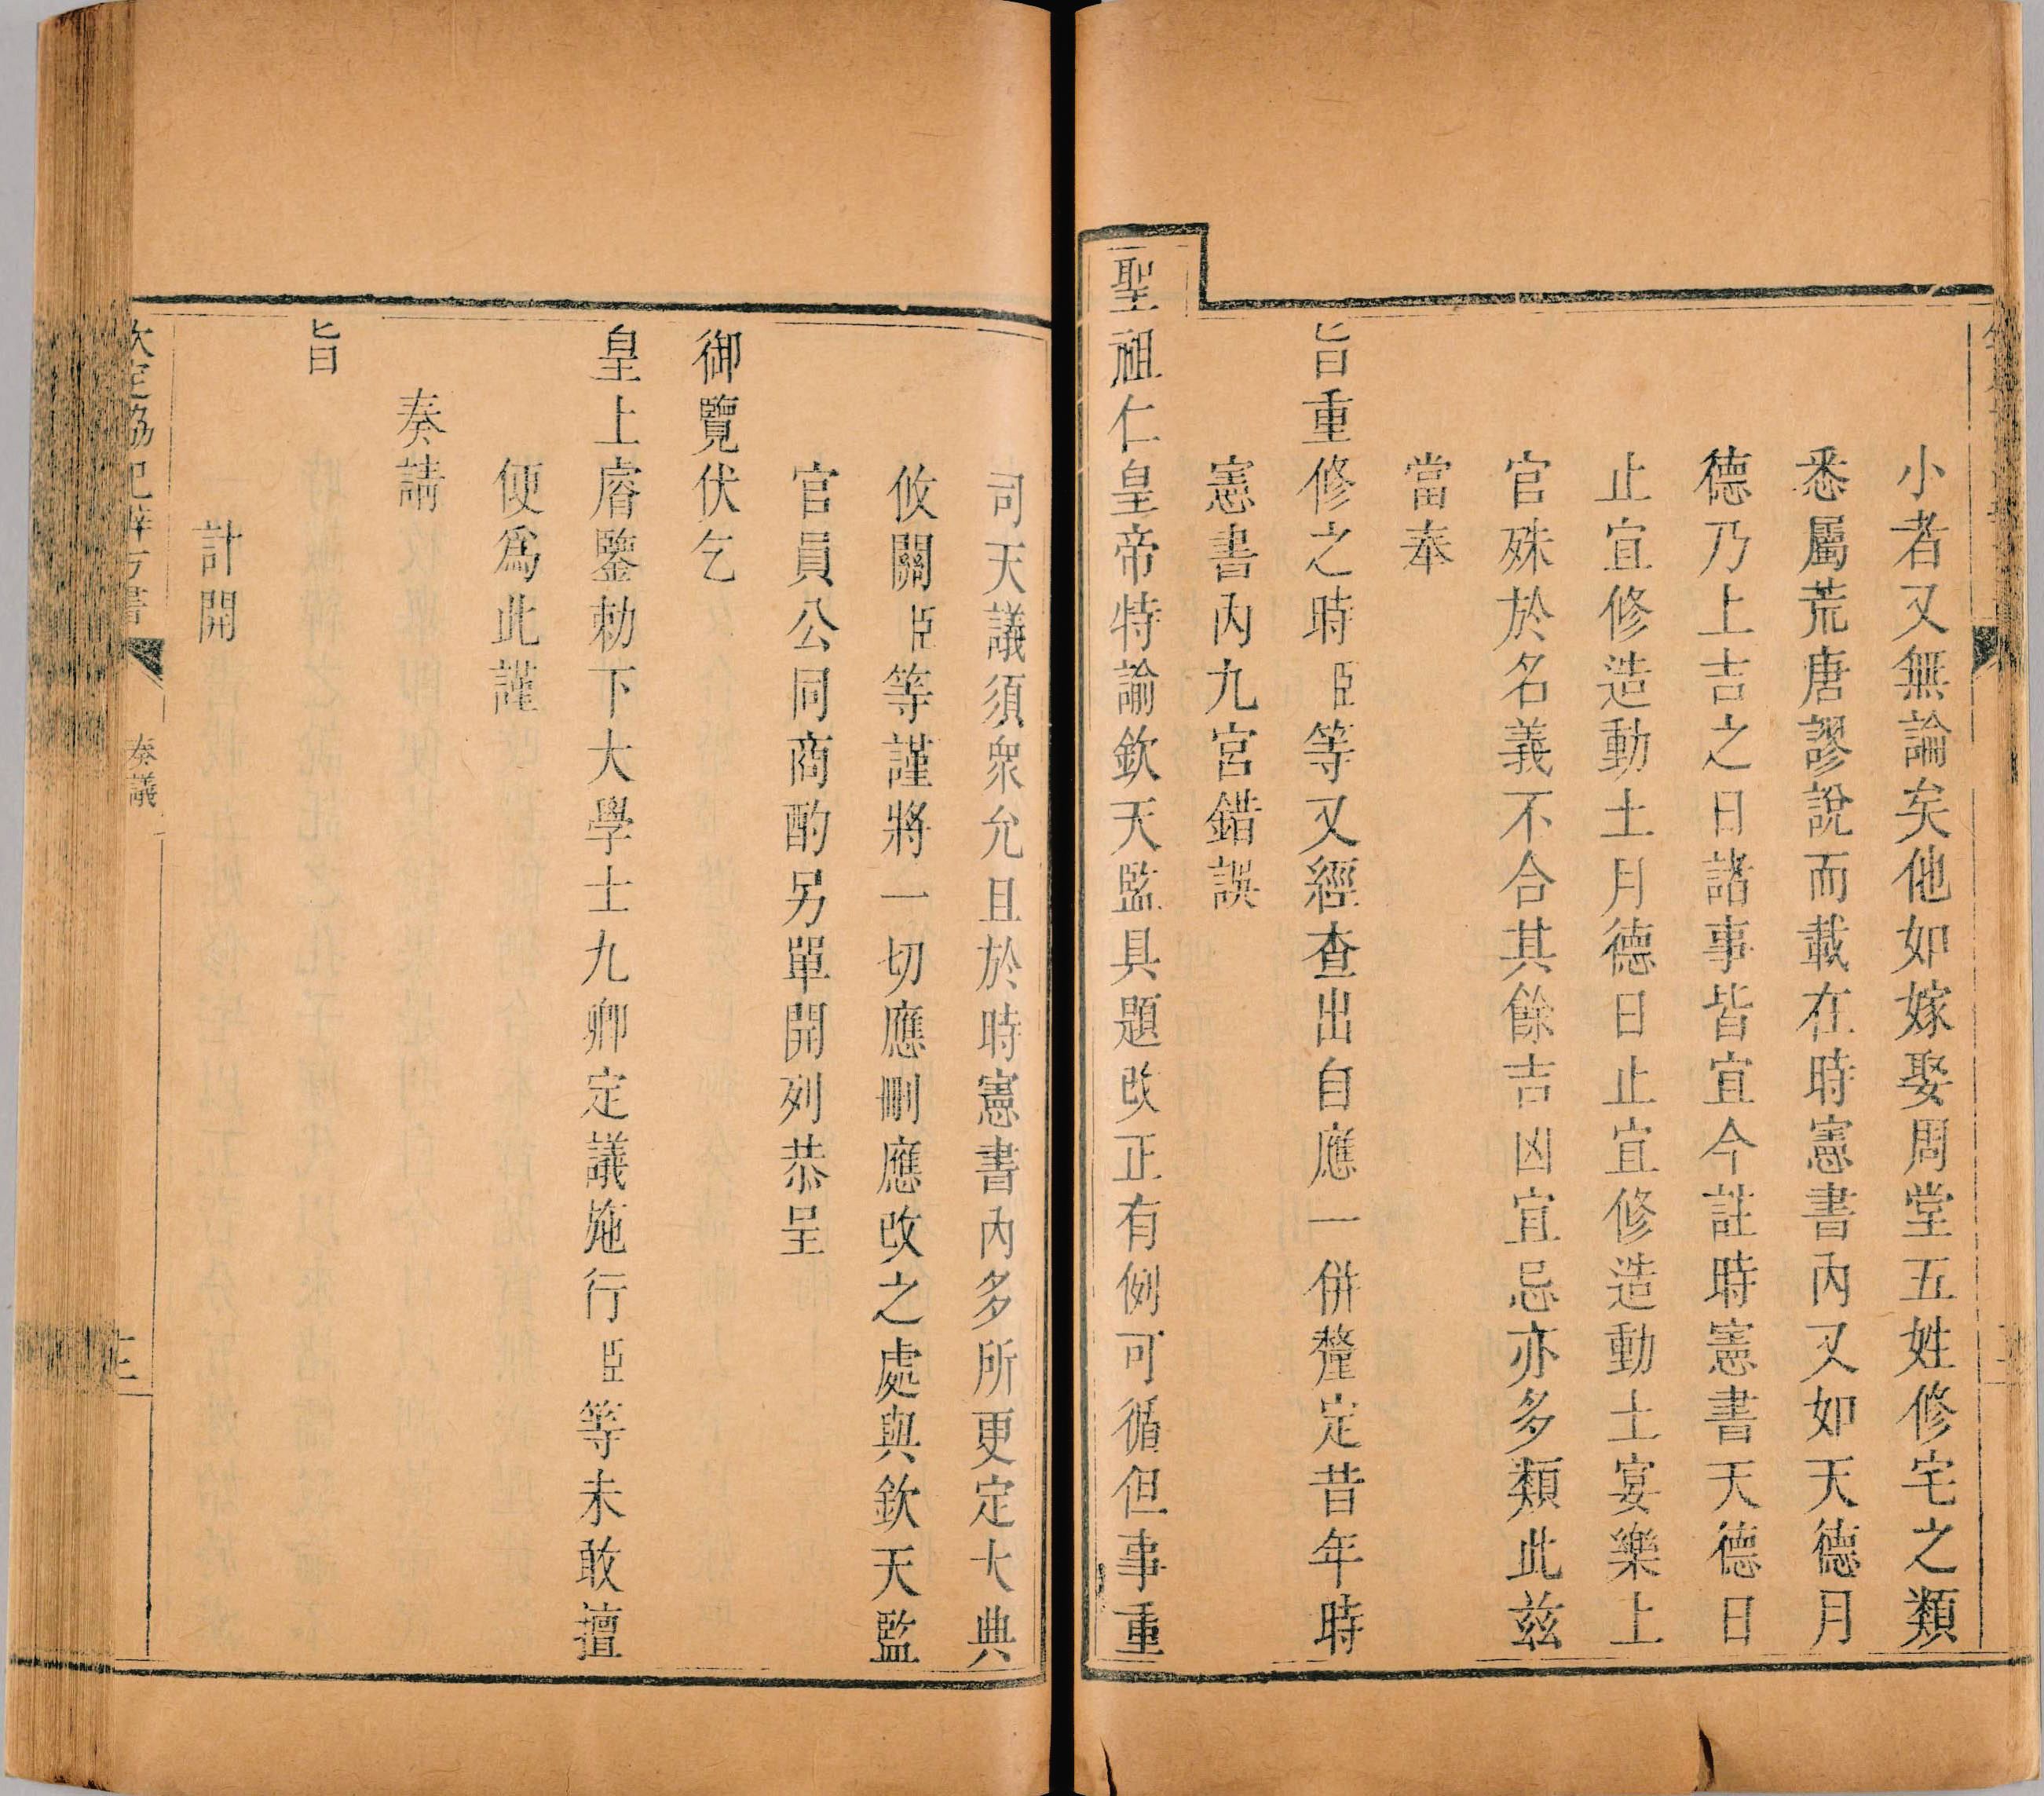 小者又無論矣他如嫁娶周堂五姓修宅之類
悉屬荒唐謬說而載在時憲書內又如天德月
德乃上吉之日諸事皆宜今註時憲書天德日
止宜修造動土月德日止宜修造動土宴樂上
官殊於名義不合其餘吉凶宜忌亦多類此茲
當奉
旨重修之時臣等又經查出自應一併釐定昔年時
憲書內九宮錯誤
聖祖仁皇帝特諭欽天監具題改正有例可循但事重
司天議須衆允且於時憲書內多所更定大典
攸關臣等謹將一切應刪應改之處與欽天監
官員公同商酌另單開列恭呈
御覽伏乞
皇上睿鑒勅下大學士九卿定議施行臣等未敢擅
便爲此謹
奏請
旨
計開
欽定協紀辨方書
奏議
三